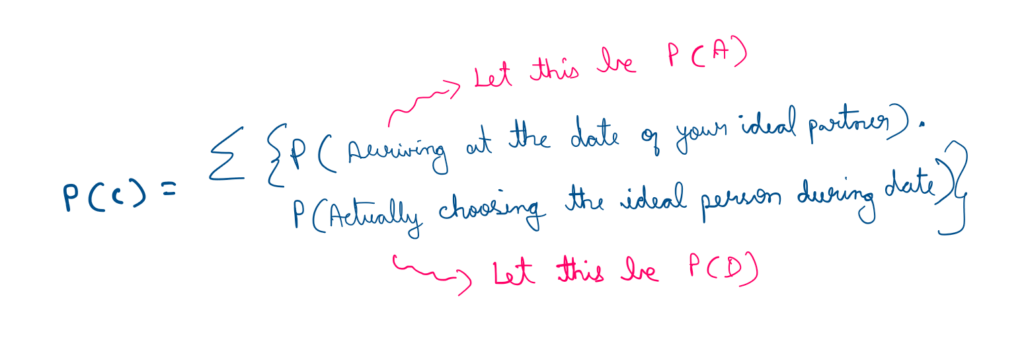 Let this be P(A)
Σ {P(Arriving at the date of your ideal partner).
P(C) =
P(Actually choosing the ideal person during date)}
Let this be P(D)